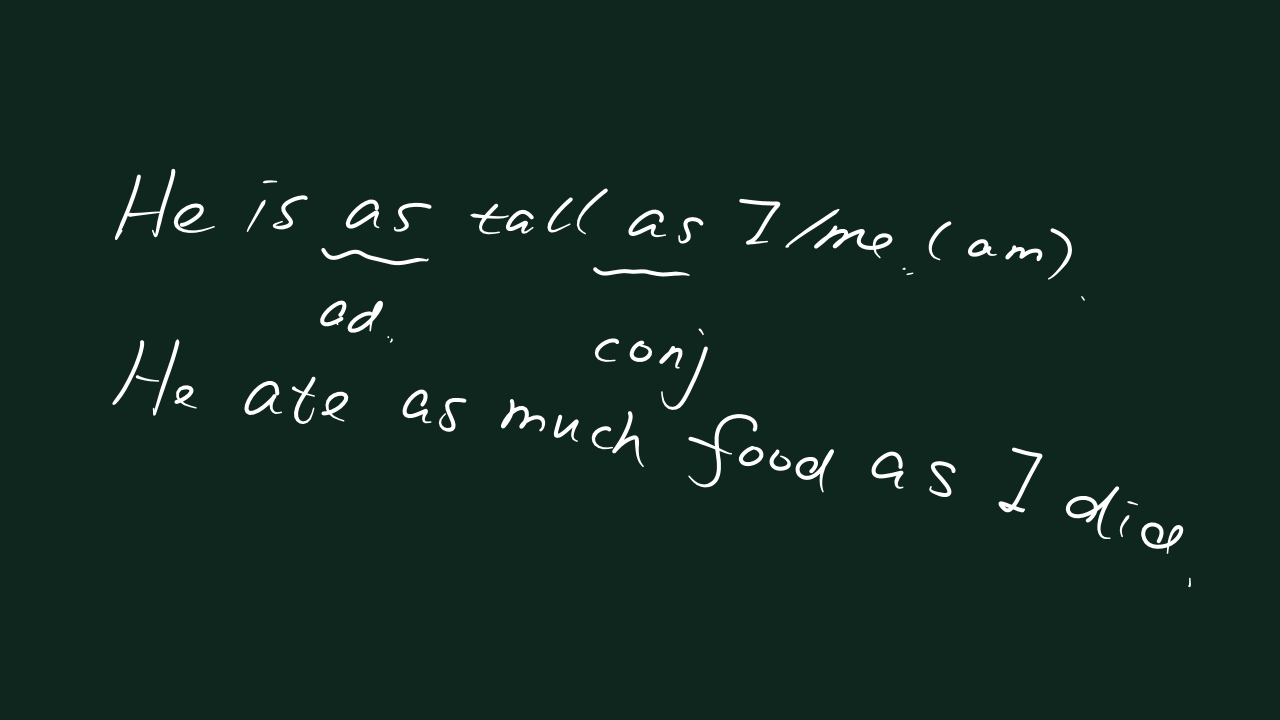 He is as tall as I/me. (am).
ad. conj
He ate as much food as I did.